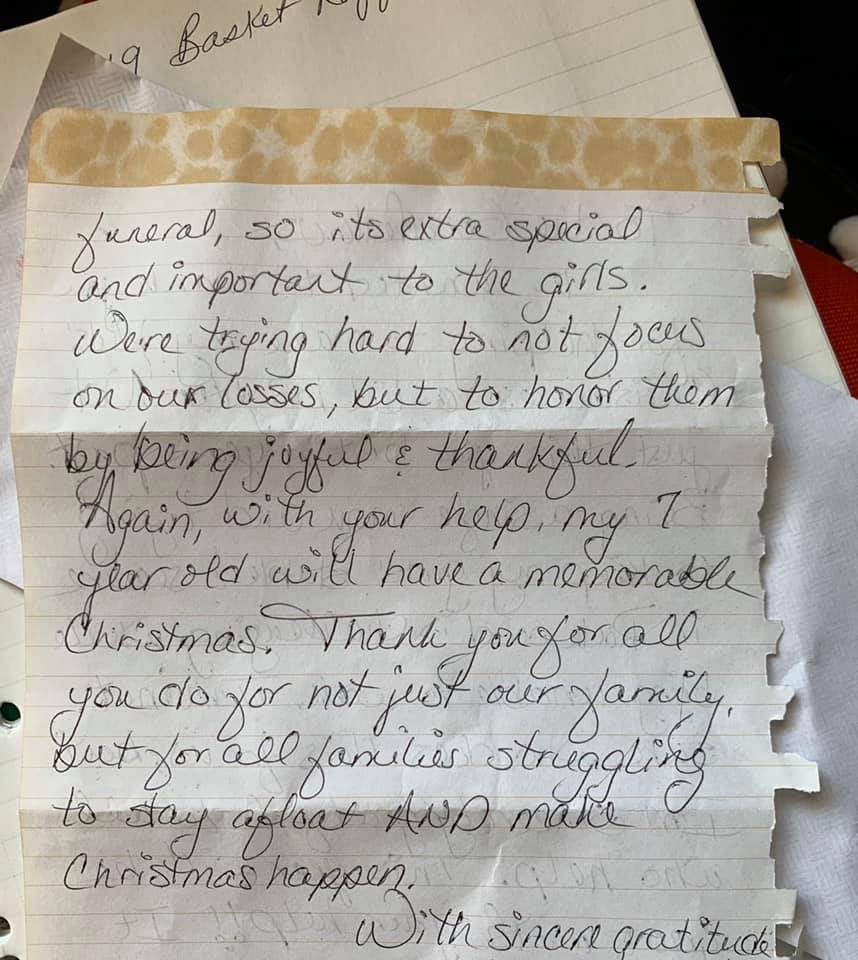 19 Basket
funeral, so its extra special
and important to the girls.
We're trying hard to not focus
on our losses, but to honor them
by being joyful & thankful.
Again, with your help, my 7
year old will have a memorable
Christmas. Thank you for all
you do for not just our family,
but for all families struggling
to stay afloat AND make
Christmas happen.
With sincere gratitude